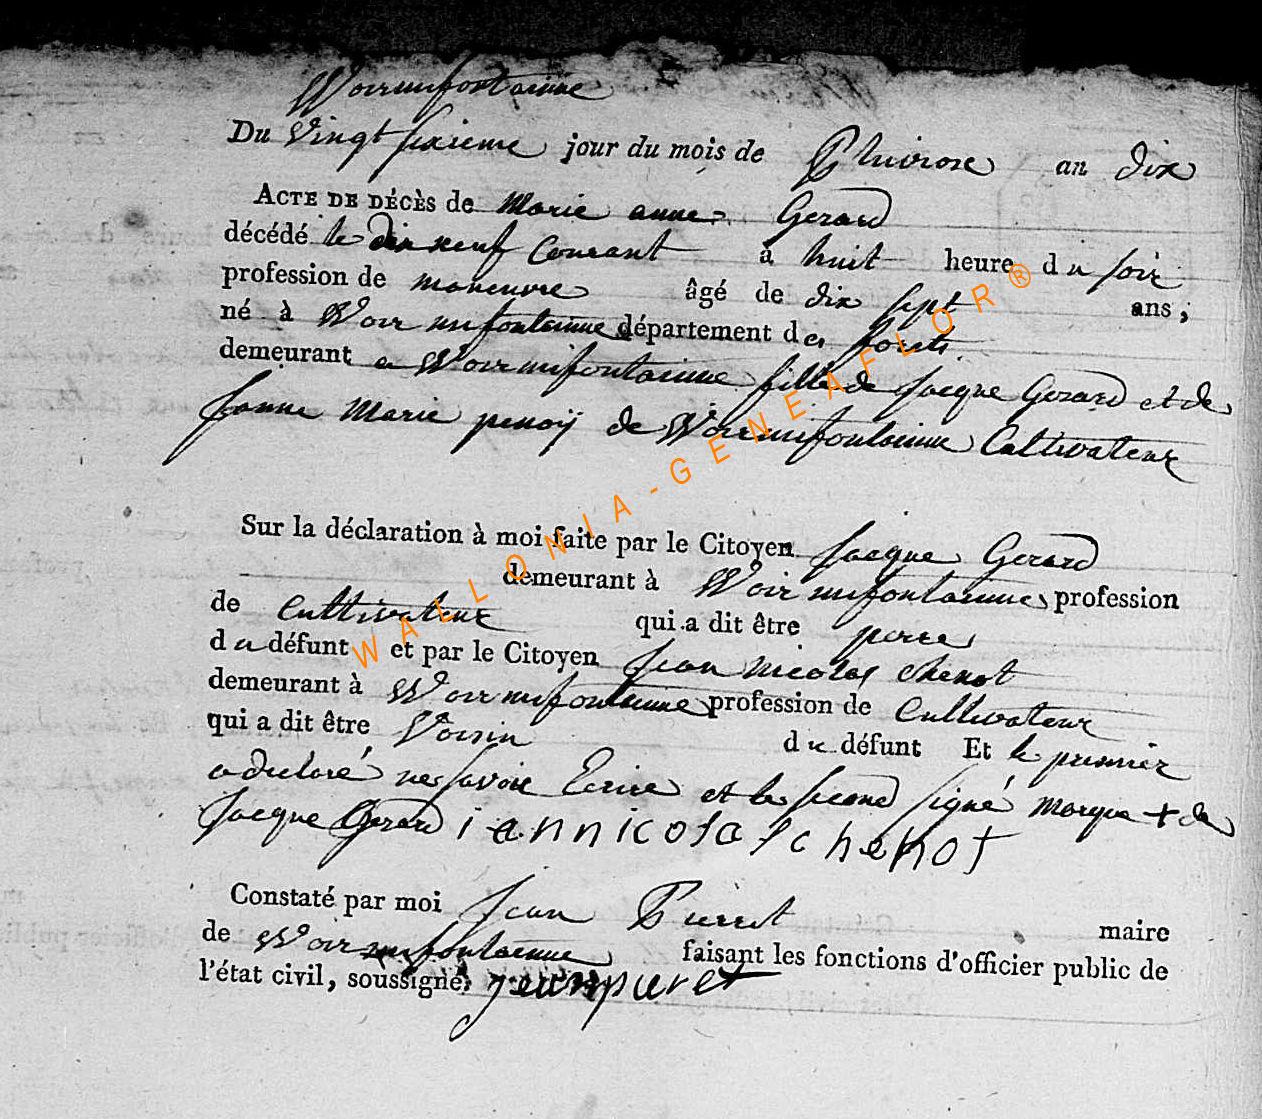 Woirumfontainne
Du Vingt sixieme jour du mois de Pluviose an dix
ACTE DE DÉCÈS de Marie anne Gerard
décédé le dix neuf Courant à huit heure du soir
profession de maneuvre âgé de dix sept ans ;
né à Woirumfontainne département des forets
demeurant a Woirumfontainne fille de Jacque Gerard et de
Janne Marie penoÿ de Woirumfontainne Cultivateur
Sur la déclaration à moi faite par le Citoyen Jacque Gerard
demeurant à Woirumfontainne profession
de Cultivateur qui a dit être perre
du défunt et par le Citoyen Jean nicolas chenot
demeurant à Woirumfontainne profession de Cultivateur
qui a dit être Voisin du défunt Et le premier
a declaré ne savoir Ecrire et le second signé marque + de
Jacque Gerard iannicolas chenot
Constaté par moi Jean Pierret maire
de Woirumfontainne faisant les fonctions d'officier public de
l'état civil, soussigné, jeanpieret
WALLONIA-GENEAFLOR®